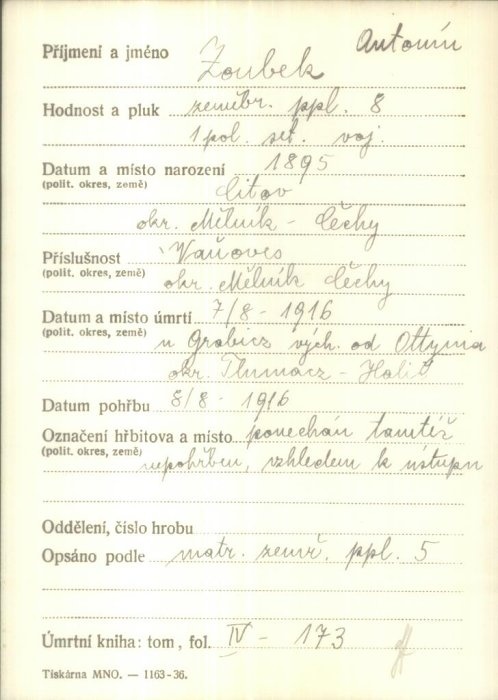 Příjmení a jméno Zoubek Antonín
Hodnost a pluk zeměbr. ppl. 8
1 pol. set. voj.
Datum a místo narození 1895
(polit. okres, země) Citov
okr. Mělník - Čechy
Příslušnost Vaňoves
(polit. okres, země) okr. Mělník Čechy
Datum a místo úmrtí 7/8 - 1916
(polit. okres, země) u Grabicz vých. od Ottynia
okr. Tlumacz - Halič
Datum pohřbu 8/8 - 1916
Označení hřbitova a místo ponechán tamtéž
(polit. okres, země) nepohřben, vzhledem k ústupu
Oddělení, číslo hrobu
Opsáno podle matr. zemř. ppl. 5
Úmrtní kniha: tom, fol. IV - 173
Tiskárna MNO. — 1163-36.